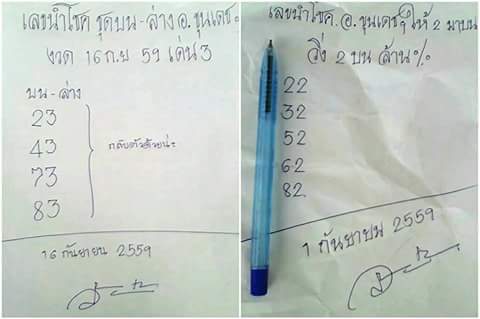 เลขนำโชค ชุดบน-ล่าง อ.ขุนเดช
งวด 16 ก.ย 59 เด่น 3
บน-ล่าง
23
43
73
83
กลับตัวด้วยน่ะ
16 กันยายน 2559
เลขนำโชค. อ.ขุนเดชฯ ให้ 2 มาบน
วิ่ง 2 บน ล้าน%
22
32
52
62
82
1 กันยายน 2559